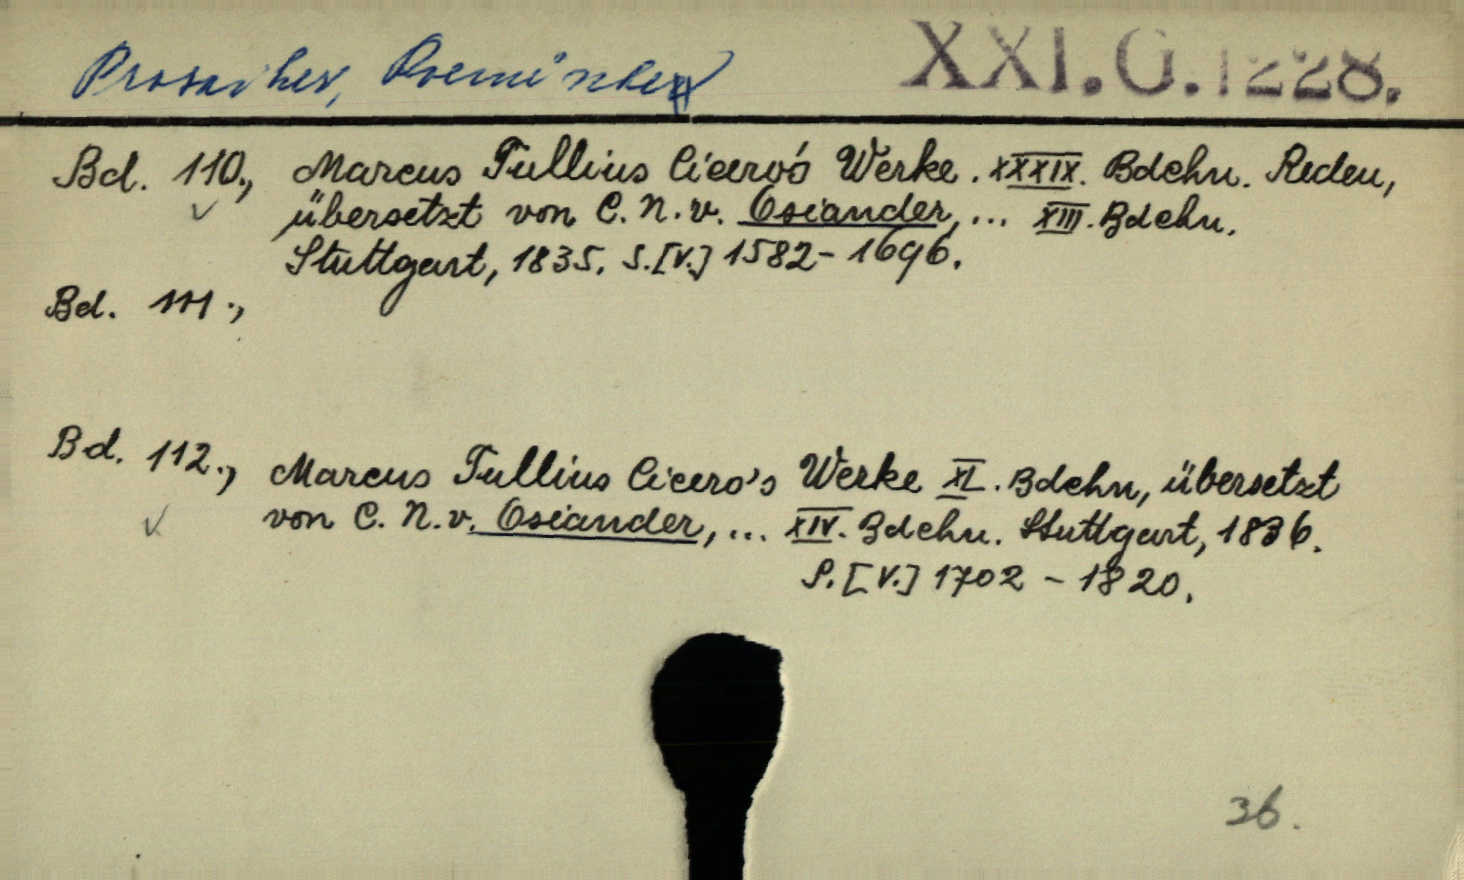 Prosaiker, Roemischer
XXI.G.1228.
Bd. 110., Marcus Tullius Cicero's Werke. XXXIX. Bdchn. Reden,
übersetzt von C. N. v. Osiander, ... XIII. Bdchn.
Stuttgart, 1835. S. [V.] 1582-1696.
Bd. 111.,
Bd. 112., Marcus Tullius Cicero's Werke XL. Bdchn, übersetzt
von C. N. v. Osiander, ... XIV. Bdchn. Stuttgart, 1836.
S. [V.] 1702 - 1820.
36.